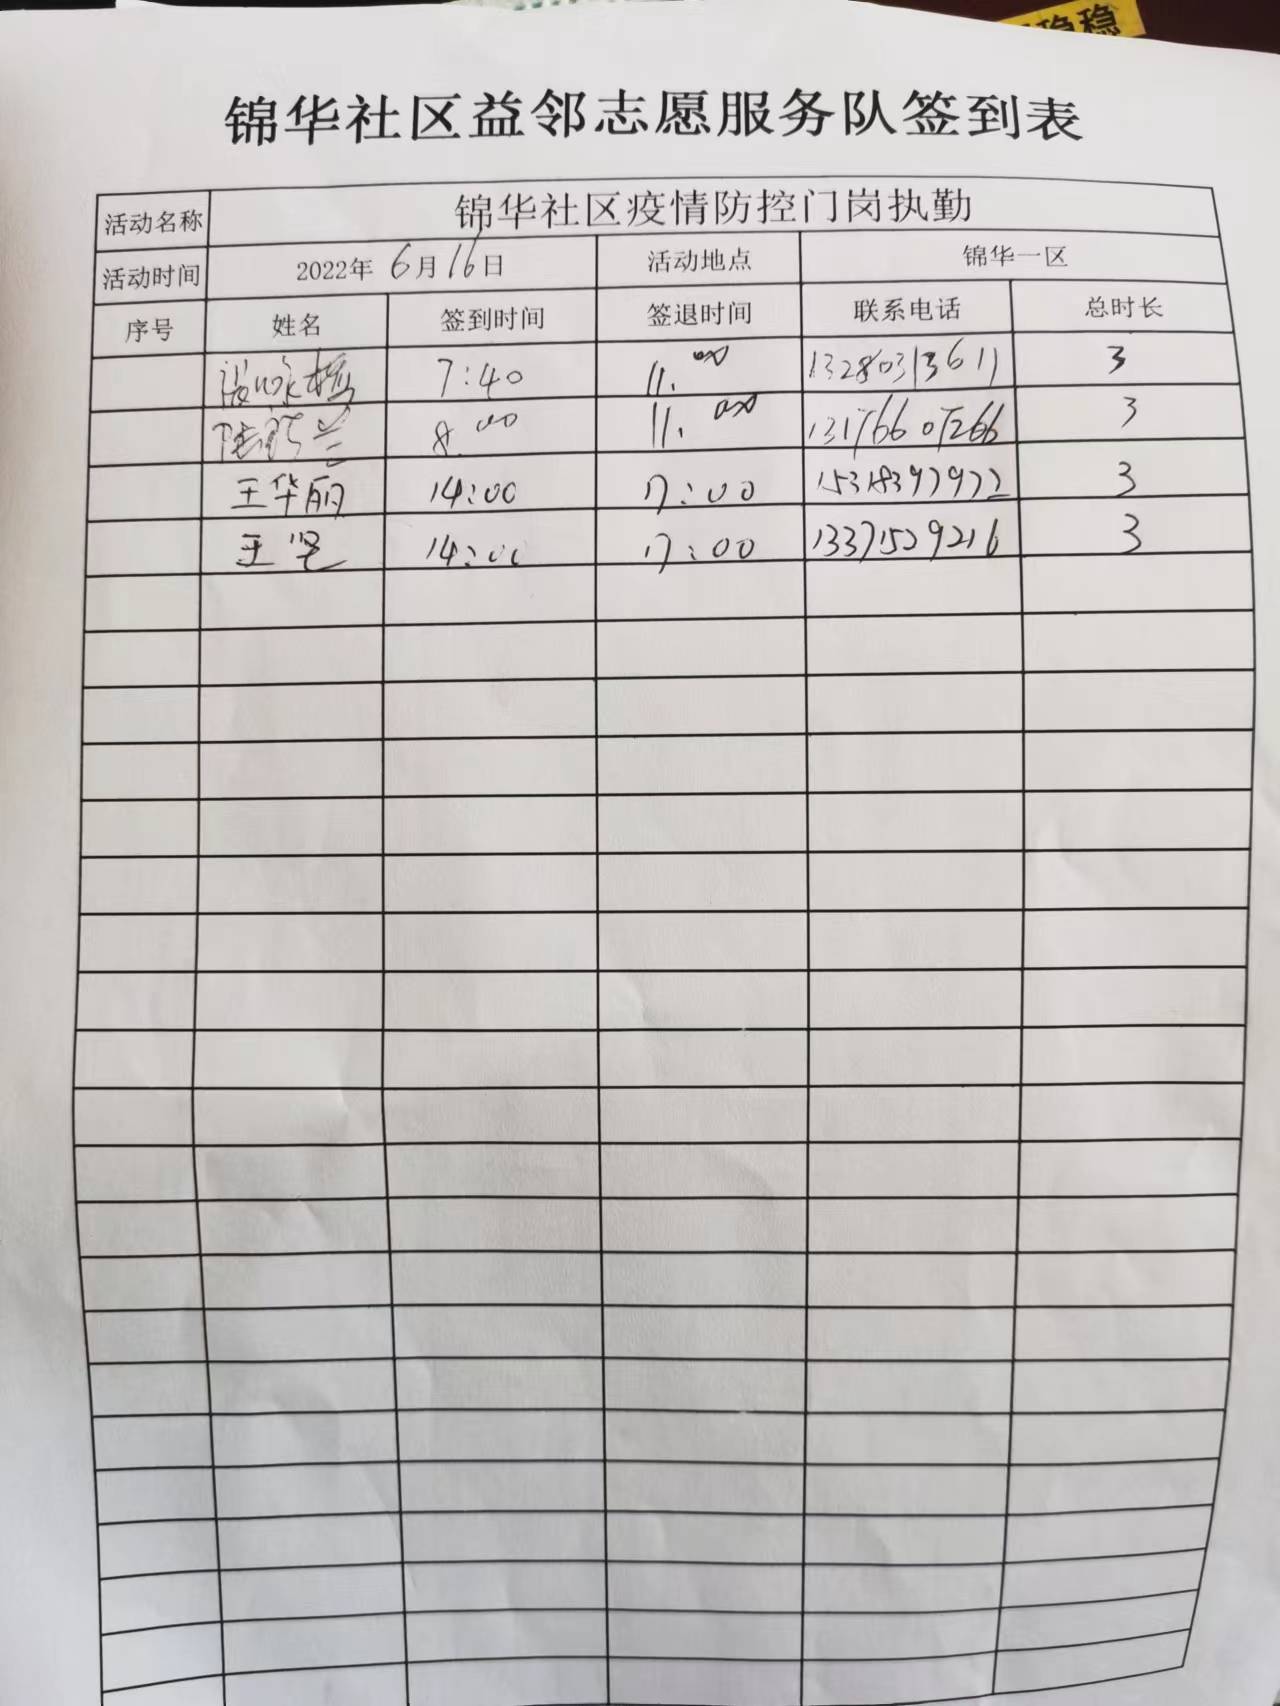 稳稳
锦华社区益邻志愿服务队签到表
活动名称 锦华社区疫情防控门岗执勤
活动时间 2022年 6月16日 活动地点 锦华一区
序号 姓名 签到时间 签退时间 联系电话 总时长
7:40 11.00 13280313611 3
8.00 11.00 3
王华丽 14:00 17:00 15318397972 3
王坚 14:00 17:00 13371529216 3